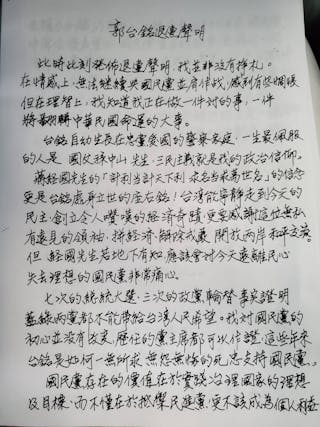 郭台銘退黨聲明
此時此刻發佈退黨聲明,我並非沒有掙扎。
在情感上,無法繼續與國民黨並肩作戰,感到有些惆悵
但在理智上,我知道我正在做一件對的事,一件
將翻轉中華民國命運的大事。
台銘自幼生長在忠黨愛國的警察家庭,一生最佩服
的人是 國父孫中山先生,三民主義就是我的政治信仰。
蔣經國先生的「計利當計天下利 求名當求萬世名」的信念
更是台銘處身立世的座右銘!台灣能寧靜走到今天的
民主,創立令人嘆嘆的經濟奇蹟,更要感謝這位無私
有遠見的領袖,拼經濟、解除戒嚴、開放兩岸和平交流。
但 經國先生若地下有知,應該會對今天舉離民心
失去理想的國民黨非常痛心。
七次的總統大選,三次的政黨輪替,事實證明
藍綠兩黨都不能帶給台灣人民希望。我對國民黨的
初心並沒有改變,歷任的黨主席都可以作證,這些年來
台銘是如何一無所求、無怨無悔的死忠支持國民黨。
國民黨存在的價值在於實踐治理國家的理想
及目標,而不僅在於抵樂民進黨,更不該成為個人利益